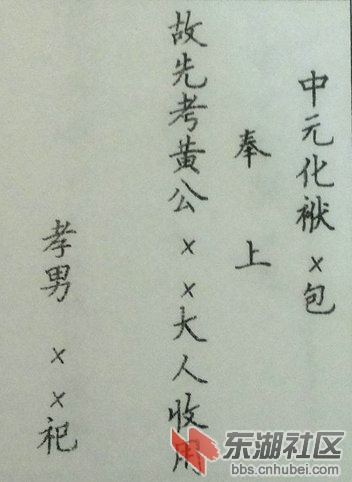 中元化袱×包
奉上
故先考黄公××大人收用
孝男××祀
东湖社区
bbs.cnhubei.com